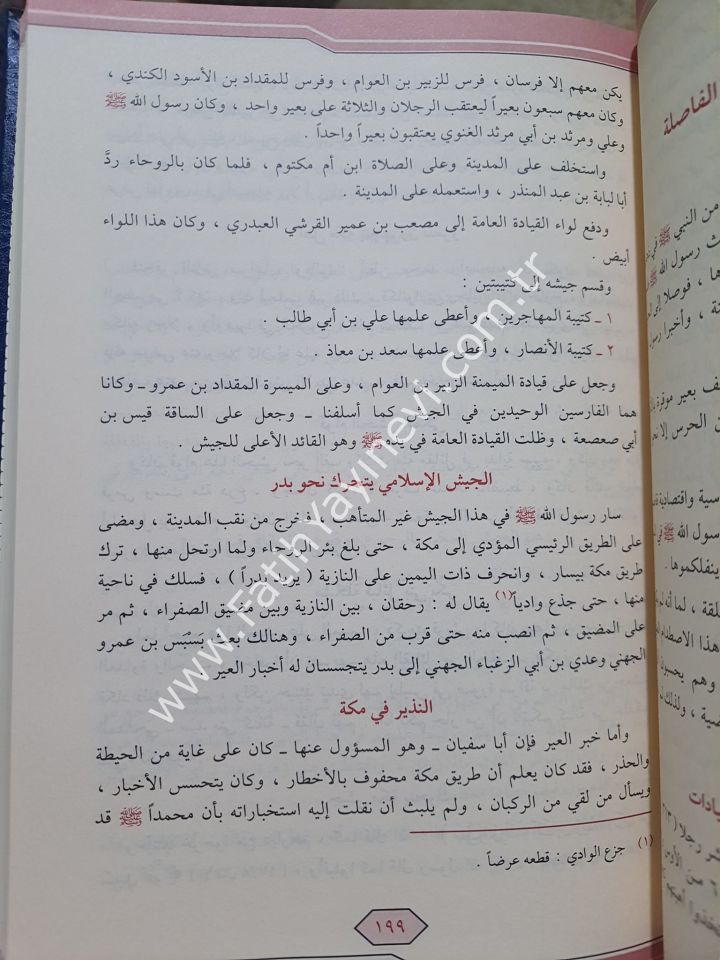 يكن معهم إلا فرسان ، فرس للزبير بن العوام ، وفرس للمقداد بن الأسود الكندي ،
وكان معهم سبعون بعيراً ليعتقب الرجلان والثلاثة على بعير واحد ، وكان رسول الله ﷺ
وعلي ومرثد بن أبي مرثد الغنوي يعتقبون بعيراً واحداً .
واستخلف على المدينة وعلى الصلاة ابن أم مكتوم ، فلما كان بالروحاء ردَّ
أبا لبابة بن عبد المنذر ، واستعمله على المدينة .
ودفع لواء القيادة العامة إلى مصعب بن عمير القرشي العبدري ، وكان هذا اللواء
أبيض .
وقسم جيشه إلى كتيبتين :
١ ـ كتيبة المهاجرين ، وأعطى علمها علي بن أبي طالب .
٢ ـ كتيبة الأنصار ، وأعطى علمها سعد بن معاذ .
وجعل على قيادة الميمنة الزبير بن العوام ، وعلى الميسرة المقداد بن عمرو ـ وكانا
هما الفارسين الوحيدين في الجيش كما أسلفنا ـ وجعل على الساقة قيس بن
أبي صعصعة ، وظلت القيادة العامة في يده ﷺ وهو القائد الأعلى للجيش .
الجيش الإسلامي يتحرك نحو بدر
سار رسول الله ﷺ في هذا الجيش غير المتأهب ، فخرج من نقب المدينة ، ومضى
على الطريق الرئيسي المؤدي إلى مكة ، حتى بلغ بئر الروحاء ولما ارتحل منها ، ترك
طريق مكة بيسار ، وانحرف ذات اليمين على النازية ( يريد بدراً ) ، فسلك في ناحية
منها ، حتى جذع وادياً(١) يقال له : رحقان ، بين النازية وبين مضيق الصفراء ، ثم مر
على المضيق ، ثم انصب منه حتى قرب من الصفراء ، وهنالك بعث بَسْبَس بن عمرو
الجهني وعدي بن أبي الزغباء الجهني إلى بدر يتجسسان له أخبار العير .
النذير في مكة
وأما خبر العير فإن أبا سفيان ـ وهو المسؤول عنها ـ كان على غاية من الحيطة
والحذر ، فقد كان يعلم أن طريق مكة محفوف بالأخطار ، وكان يتحسس الأخبار ،
ويسأل من لقي من الركبان ، ولم يلبث أن نقلت إليه استخباراته بأن محمداً ﷺ قد
(١) جزع الوادي : قطعه عرضاً .
١٩٩
www.FatihYayinevi.com.tr
الفاصلة
من النبي ﷺ في
ث رسول الله ﷺ
ها ، فوصلا إلى
ة ، وأخبرا رسول
ف بعير موقرة
ن الحرس إلا
سية واقتصادية
سول الله ﷺ
ينفلكموها .
لقة ، لما أنه لم
هذا الاصطدام
وهم يحسبون
ضية ، ولذلك
يادات
شر رجلا
من الأوس